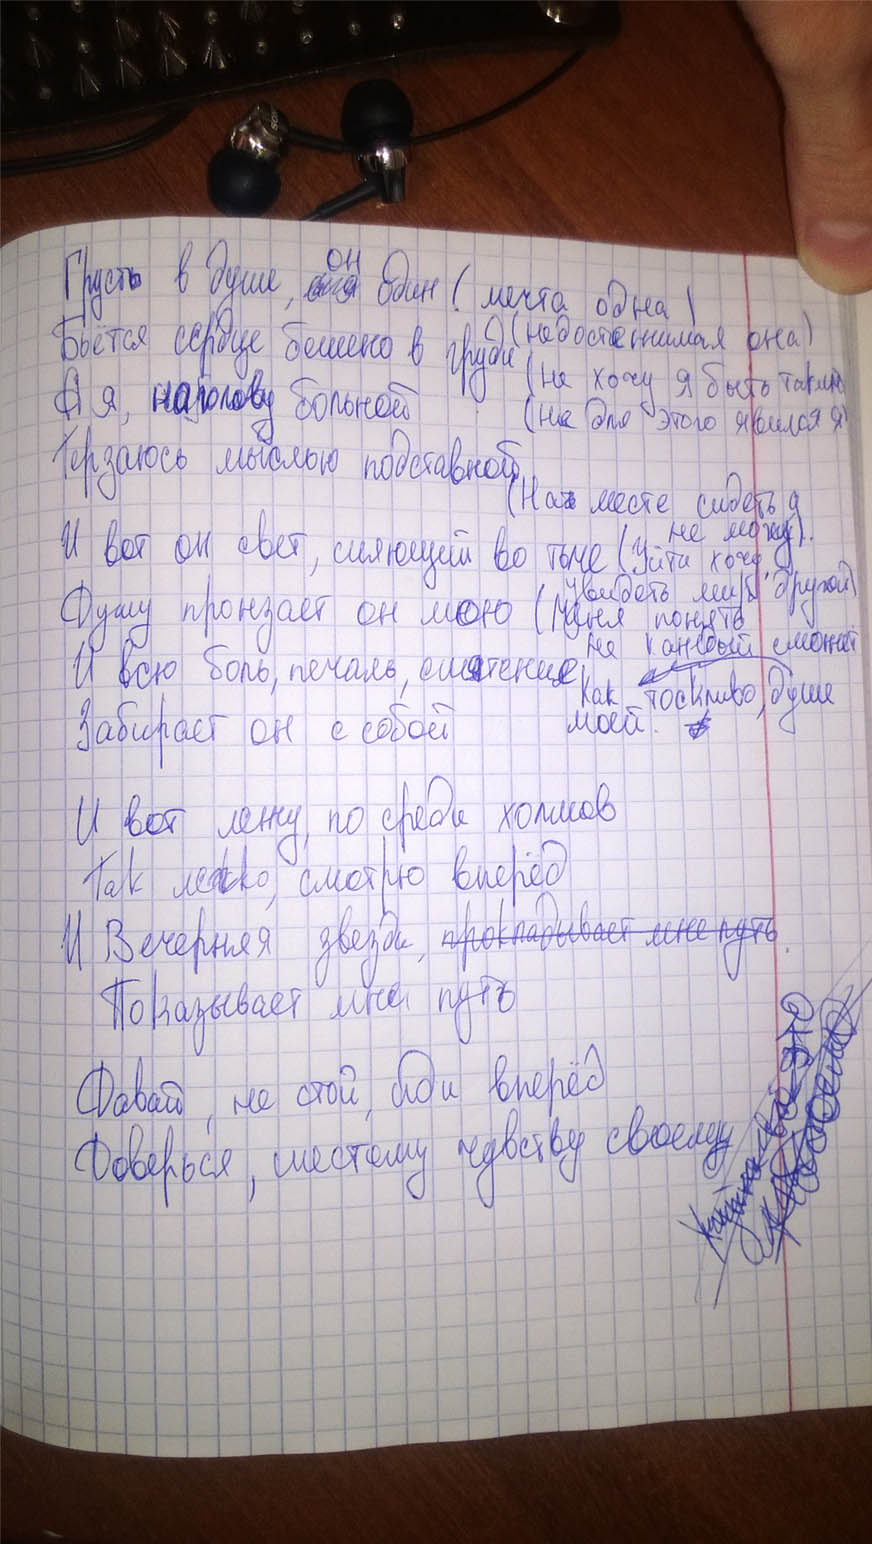 он
Грусть в душе, она один ( мечта одна )
Бьётся сердце бешено в груди (недостежимая она)
А я, наголову больной (не хочу я быть таким
(не для этого явился я)
Терзаюсь мыслью подставной
(На месте сидеть я
не могу).
И вот он свет, сияющий во тьме (Уйти хочу
увидеть мир другой)
Душу пронзает он мою (Меня понять
не каждый сможет
И всю боль, печаль, смятение,
Как тоскливо, душе
Забирает он с собой моей.
И вот лежу, по среди холмов
Так легко, смотрю вперёд
И Вечерняя звезда, прокладывает мне путь.
Показывает мне путь
Давай, не стой, иди вперёд
Доверься, шестому чувству своему